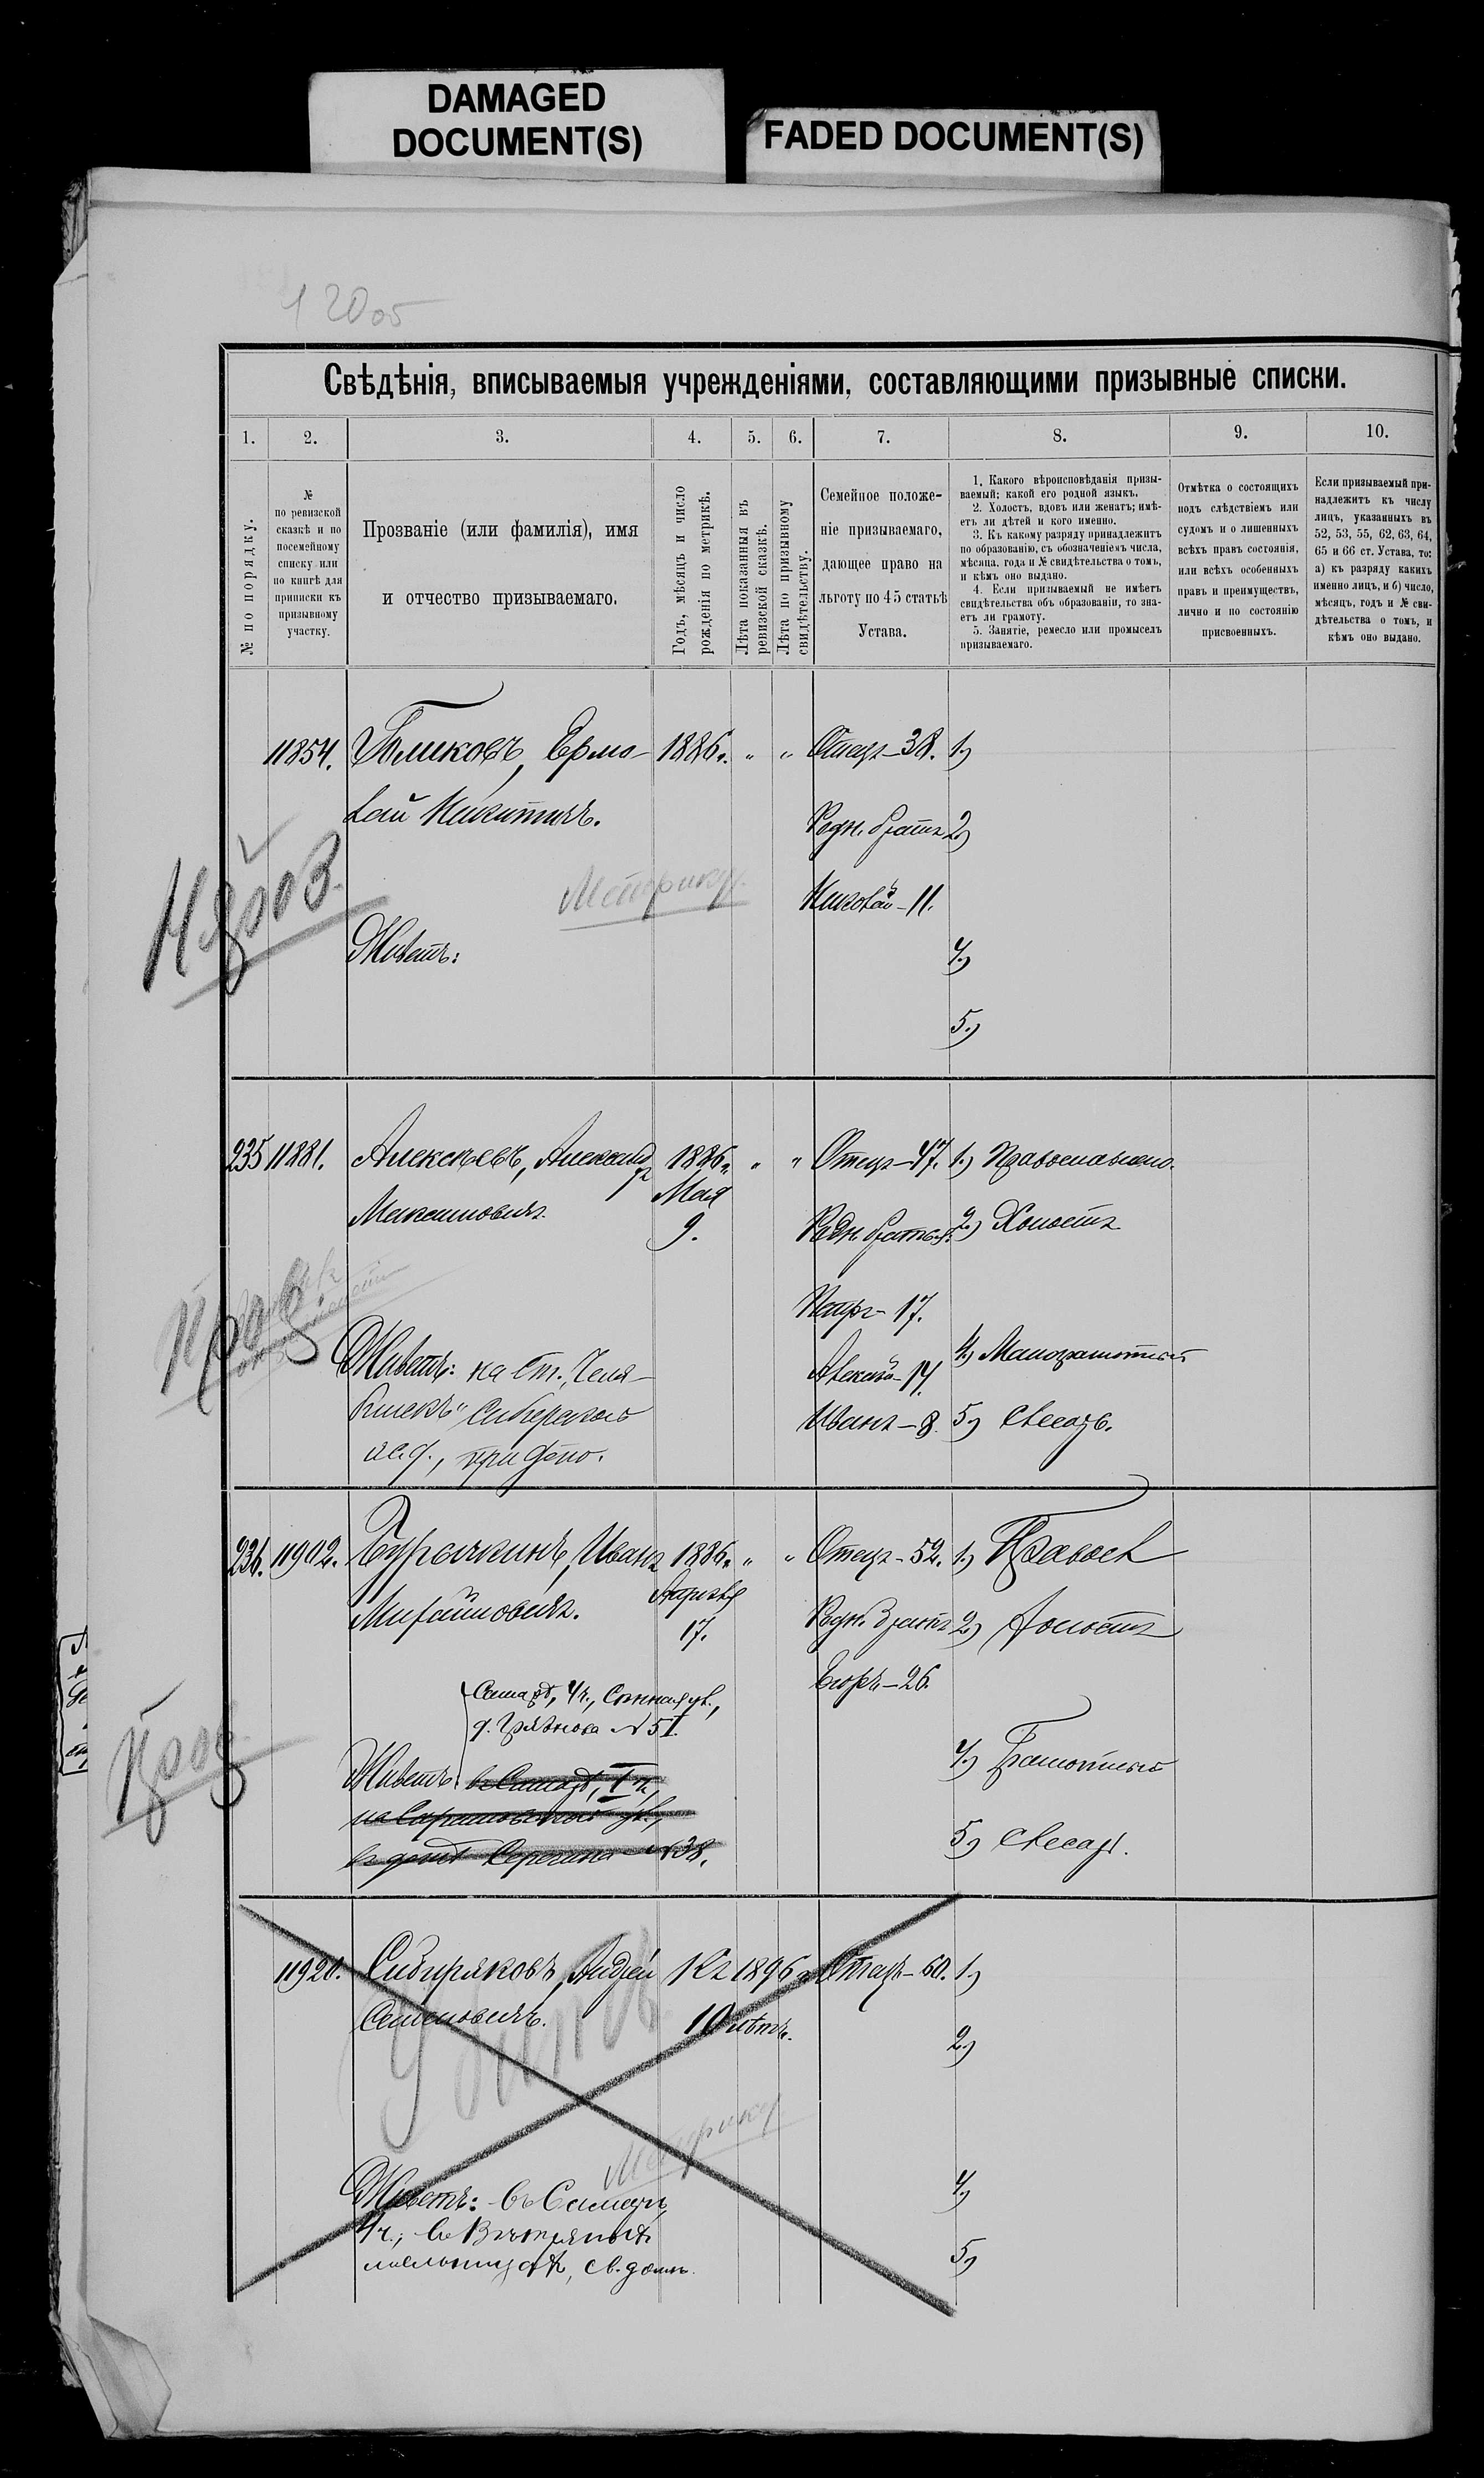 DAMAGED
DOCUMENT(S)
FADED DOCUMENT(S)
12005
Свѣдѣнія, вписываемыя учрежденіями, составляющими призывные списки.
1. 2. 3. 4. 5. 6. 7. 8. 9. 10.
№ по порядку.
№
по ревизской
сказкѣ и по
посемейному
списку или
по книгѣ для
приписки къ
призывному
участку.
Прозваніе (или фамилія), имя
и отчество призываемаго.
Годъ, мѣсяцъ и число
рожденія по метрикѣ.
Лѣта показанныя въ
ревизской сказкѣ.
Лѣта по призывному
свидѣтельству.
Семейное положе-
ніе призываемаго,
дающее право на
льготу по 45 статьѣ
Устава.
1. Какого вѣроисповѣданія призы-
ваемый; какой его родной языкъ.
2. Холостъ, вдовъ или женатъ; имѣ-
етъ ли дѣтей и кого именно.
3. Къ какому разряду принадлежитъ
по образованію, съ обозначеніемъ числа,
мѣсяца, года и № свидѣтельства о томъ,
и кѣмъ оно выдано.
4. Если призываемый не имѣетъ
свидѣтельства объ образованіи, то зна-
етъ ли грамоту.
5. Занятіе, ремесло или промыселъ
призываемаго.
Отмѣтка о состоящихъ
подъ слѣдствіемъ или
судомъ и о лишенныхъ
всѣхъ правъ состоянія,
или всѣхъ особенныхъ
правъ и преимуществъ,
лично и по состоянію
присвоенныхъ.
Если призываемый при-
надлежитъ къ числу
лицъ, указанныхъ въ
52, 53, 55, 62, 63, 64,
65 и 66 ст. Устава, то:
а) къ разряду какихъ
именно лицъ, и б) число,
мѣсяцъ, годъ и № сви-
дѣтельства о томъ, и
кѣмъ оно выдано.
11854. Голиковъ, Ермо- 1886г. " " Отецъ-38. 1)
лай Никитичъ. Родн. братъ 2)
Метрику.
Николай-11.
Живетъ: 4)
5)
235 11881. Алексѣевъ, Александръ 1886г. " " Отецъ-47. 1) Православно.
Максимовичъ. Мая Родн. братья: 2) Холостъ
9.
Петръ-17.
4) Малограмотный
Живетъ: на ст. „Челя- Алексѣй-14.
бинскъ" Сибирской Иванъ-8. 5) Слесарь.
ж.д., при депо.
236. 11902. Бурачкинъ, Иванъ 1886г. " " Отецъ-52. 1) Правосл
Михайловичъ. Апрѣля Родн. братъ 2) Холостъ
17.
Егоръ-26.
Самара, 4ч., Сѣнная ул.,
д. № 51.
4) Грамотный
Живетъ: въ Самарѣ, I ч.,
5) Слесарь.
въ домѣ №38.
11920. Сибиряковъ, Андрей Къ 1896 Отецъ-60. 1)
Семеновичъ. 10 лѣтъ.
2)
Метрику.
Живетъ: въ Самарѣ, 4)
4ч., въ Вѣтряныхъ
мельницахъ, св. домъ. 5)